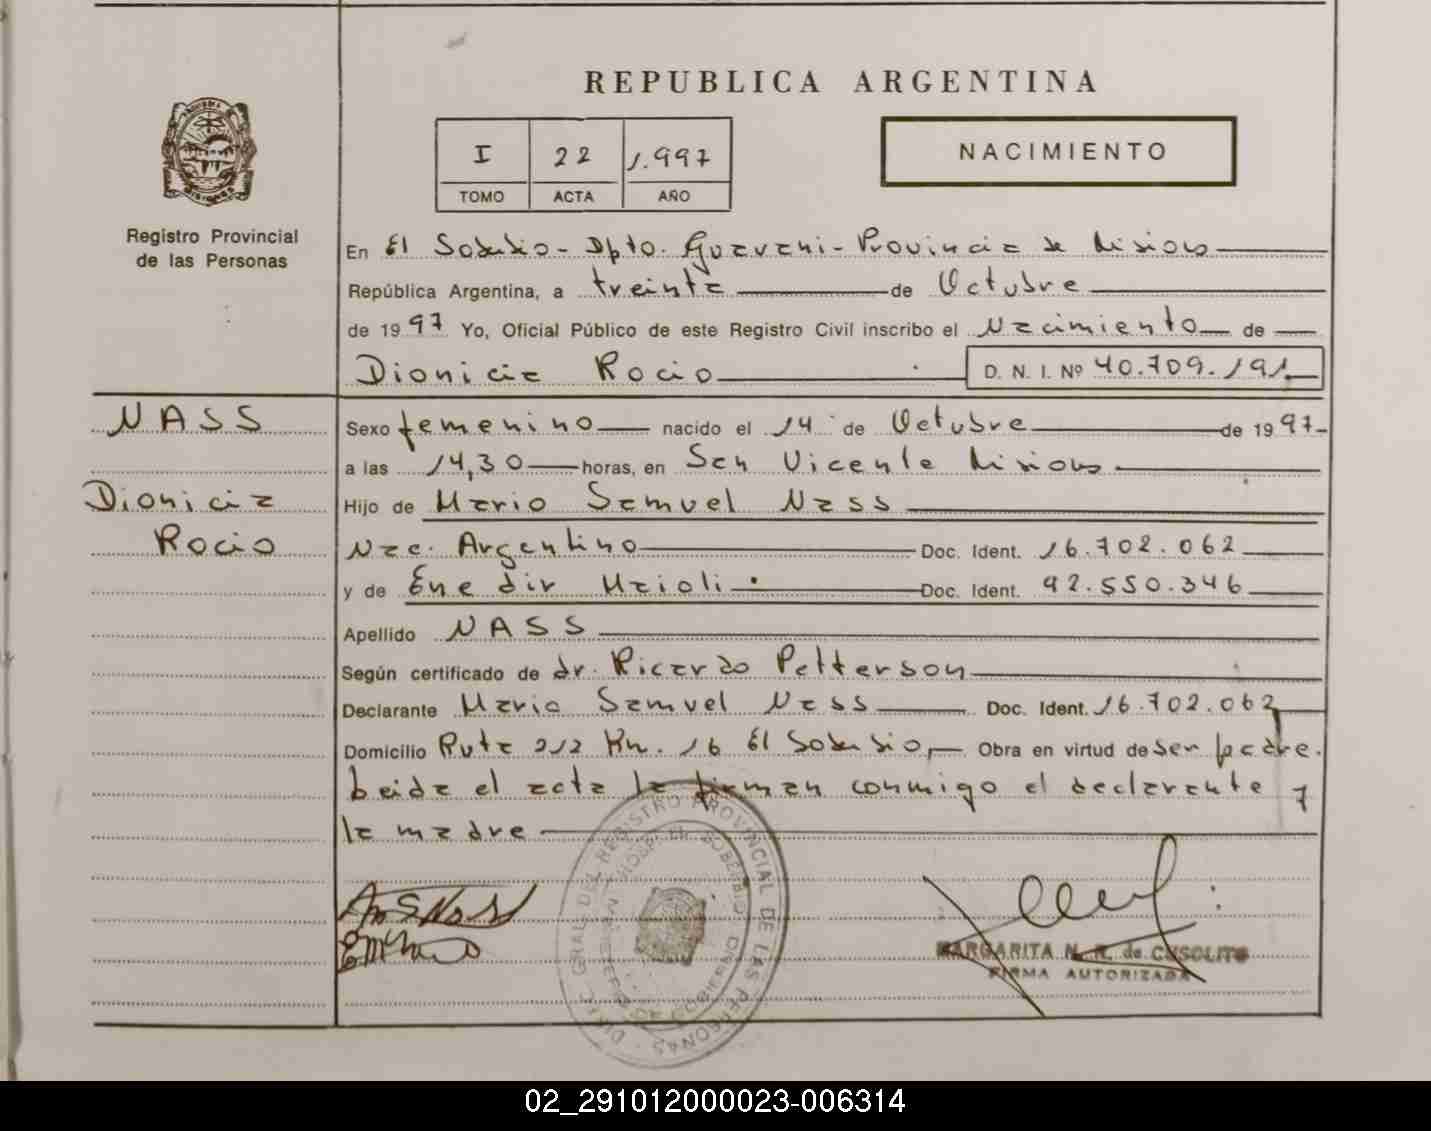 REPUBLICA ARGENTINA
I 22 1.997
TOMO ACTA AÑO
NACIMIENTO
Registro Provincial
de las Personas
En El Soberbio - Dpto. Guarani - Provincia de Misiones
República Argentina, a treinta de Octubre
de 1997 Yo, Oficial Público de este Registro Civil inscribo el Nacimiento de
Dionicia Rocio D. N. I. Nº 40.709.191
NASS
Dionicia
Rocio
Sexo femenino nacido el 14 de Octubre de 1997
a las 14,30 horas, en San Vicente Misiones
Hijo de Mario Samuel Nass
Nac. Argentino Doc. Ident. 16.702.062
y de Ene dir Maioli Doc. Ident. 92.550.346
Apellido NASS
Según certificado de dr. Ricardo Petterson
Declarante Mario Samuel Nass Doc. Ident. 16.702.062
Domicilio Ruta 212 Km. 16 El Soberbio, Obra en virtud de ser padre.
Leida el acta la firman conmigo el declarante y
la madre
MARGARITA N. R. de CUSOLITO
FIRMA AUTORIZADA
REGISTRO PROVINCIAL DE LAS PERSONAS
EL SOBERBIO
02_291012000023-006314